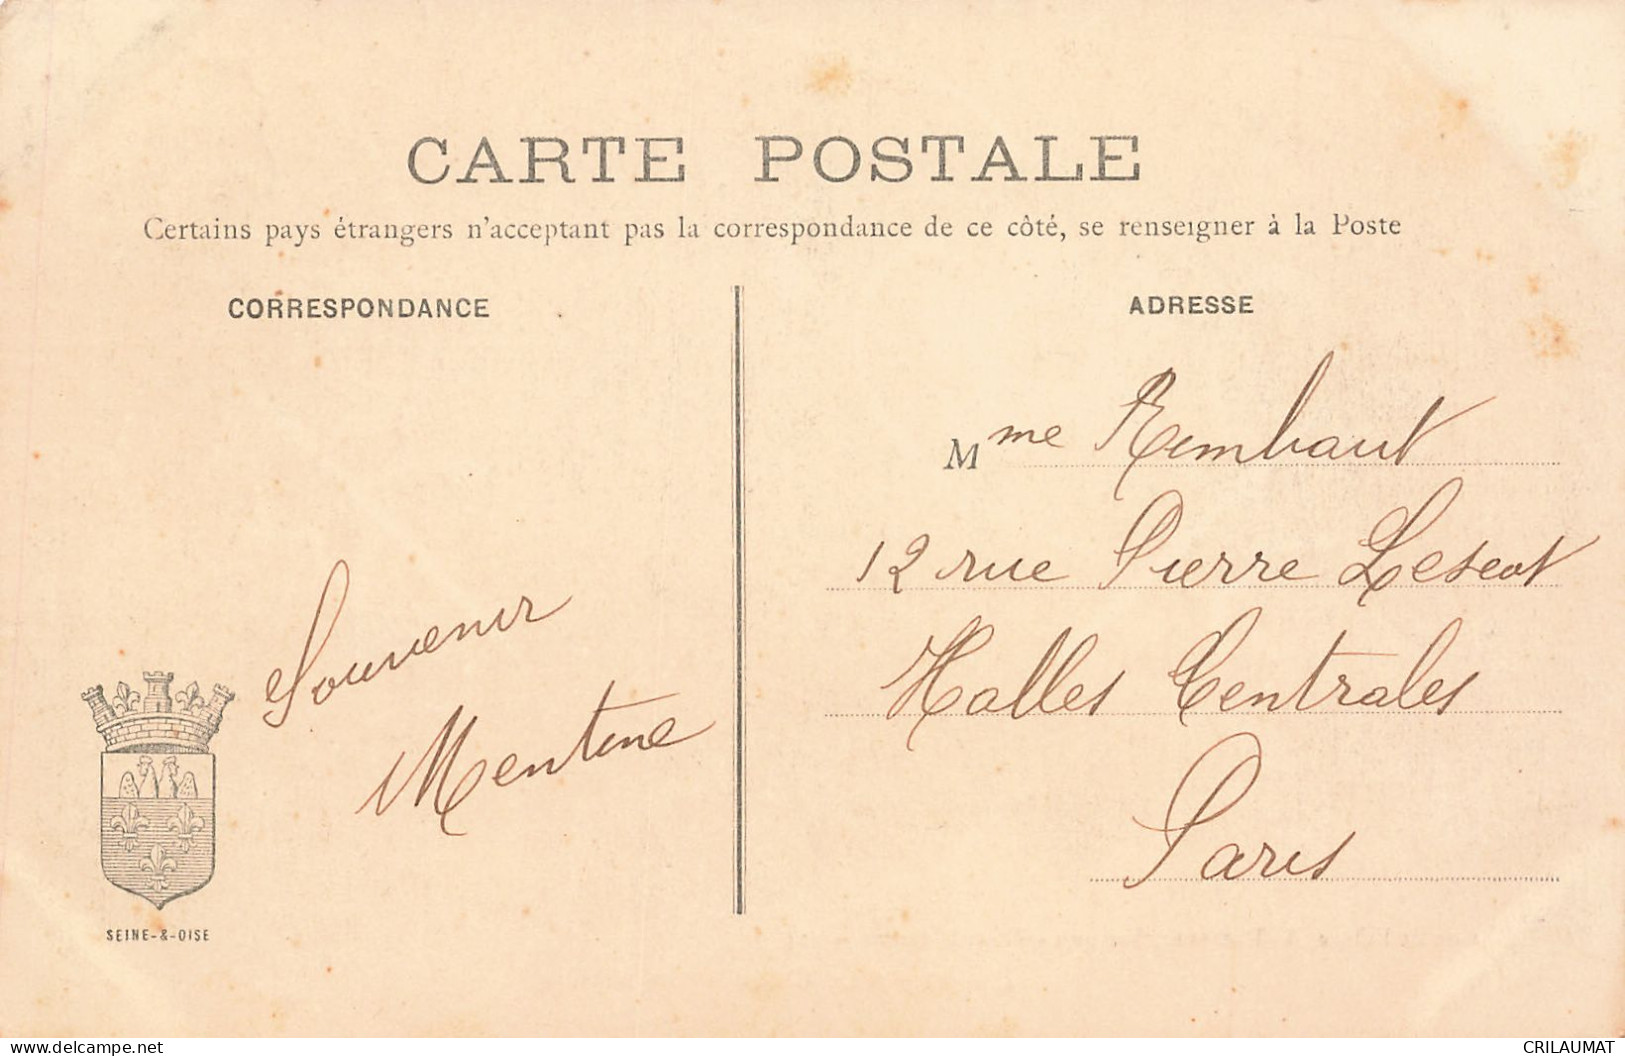 CARTE POSTALE
Certains pays étrangers n'acceptant pas la correspondance de ce côté, se renseigner à la Poste
CORRESPONDANCE
Souvenir
Mentine
SEINE-&-OISE
ADRESSE
Mme Rembaut
12 rue Pierre Lescot
Halles Centrales
Paris
delcampe.net
CRILAUMAT